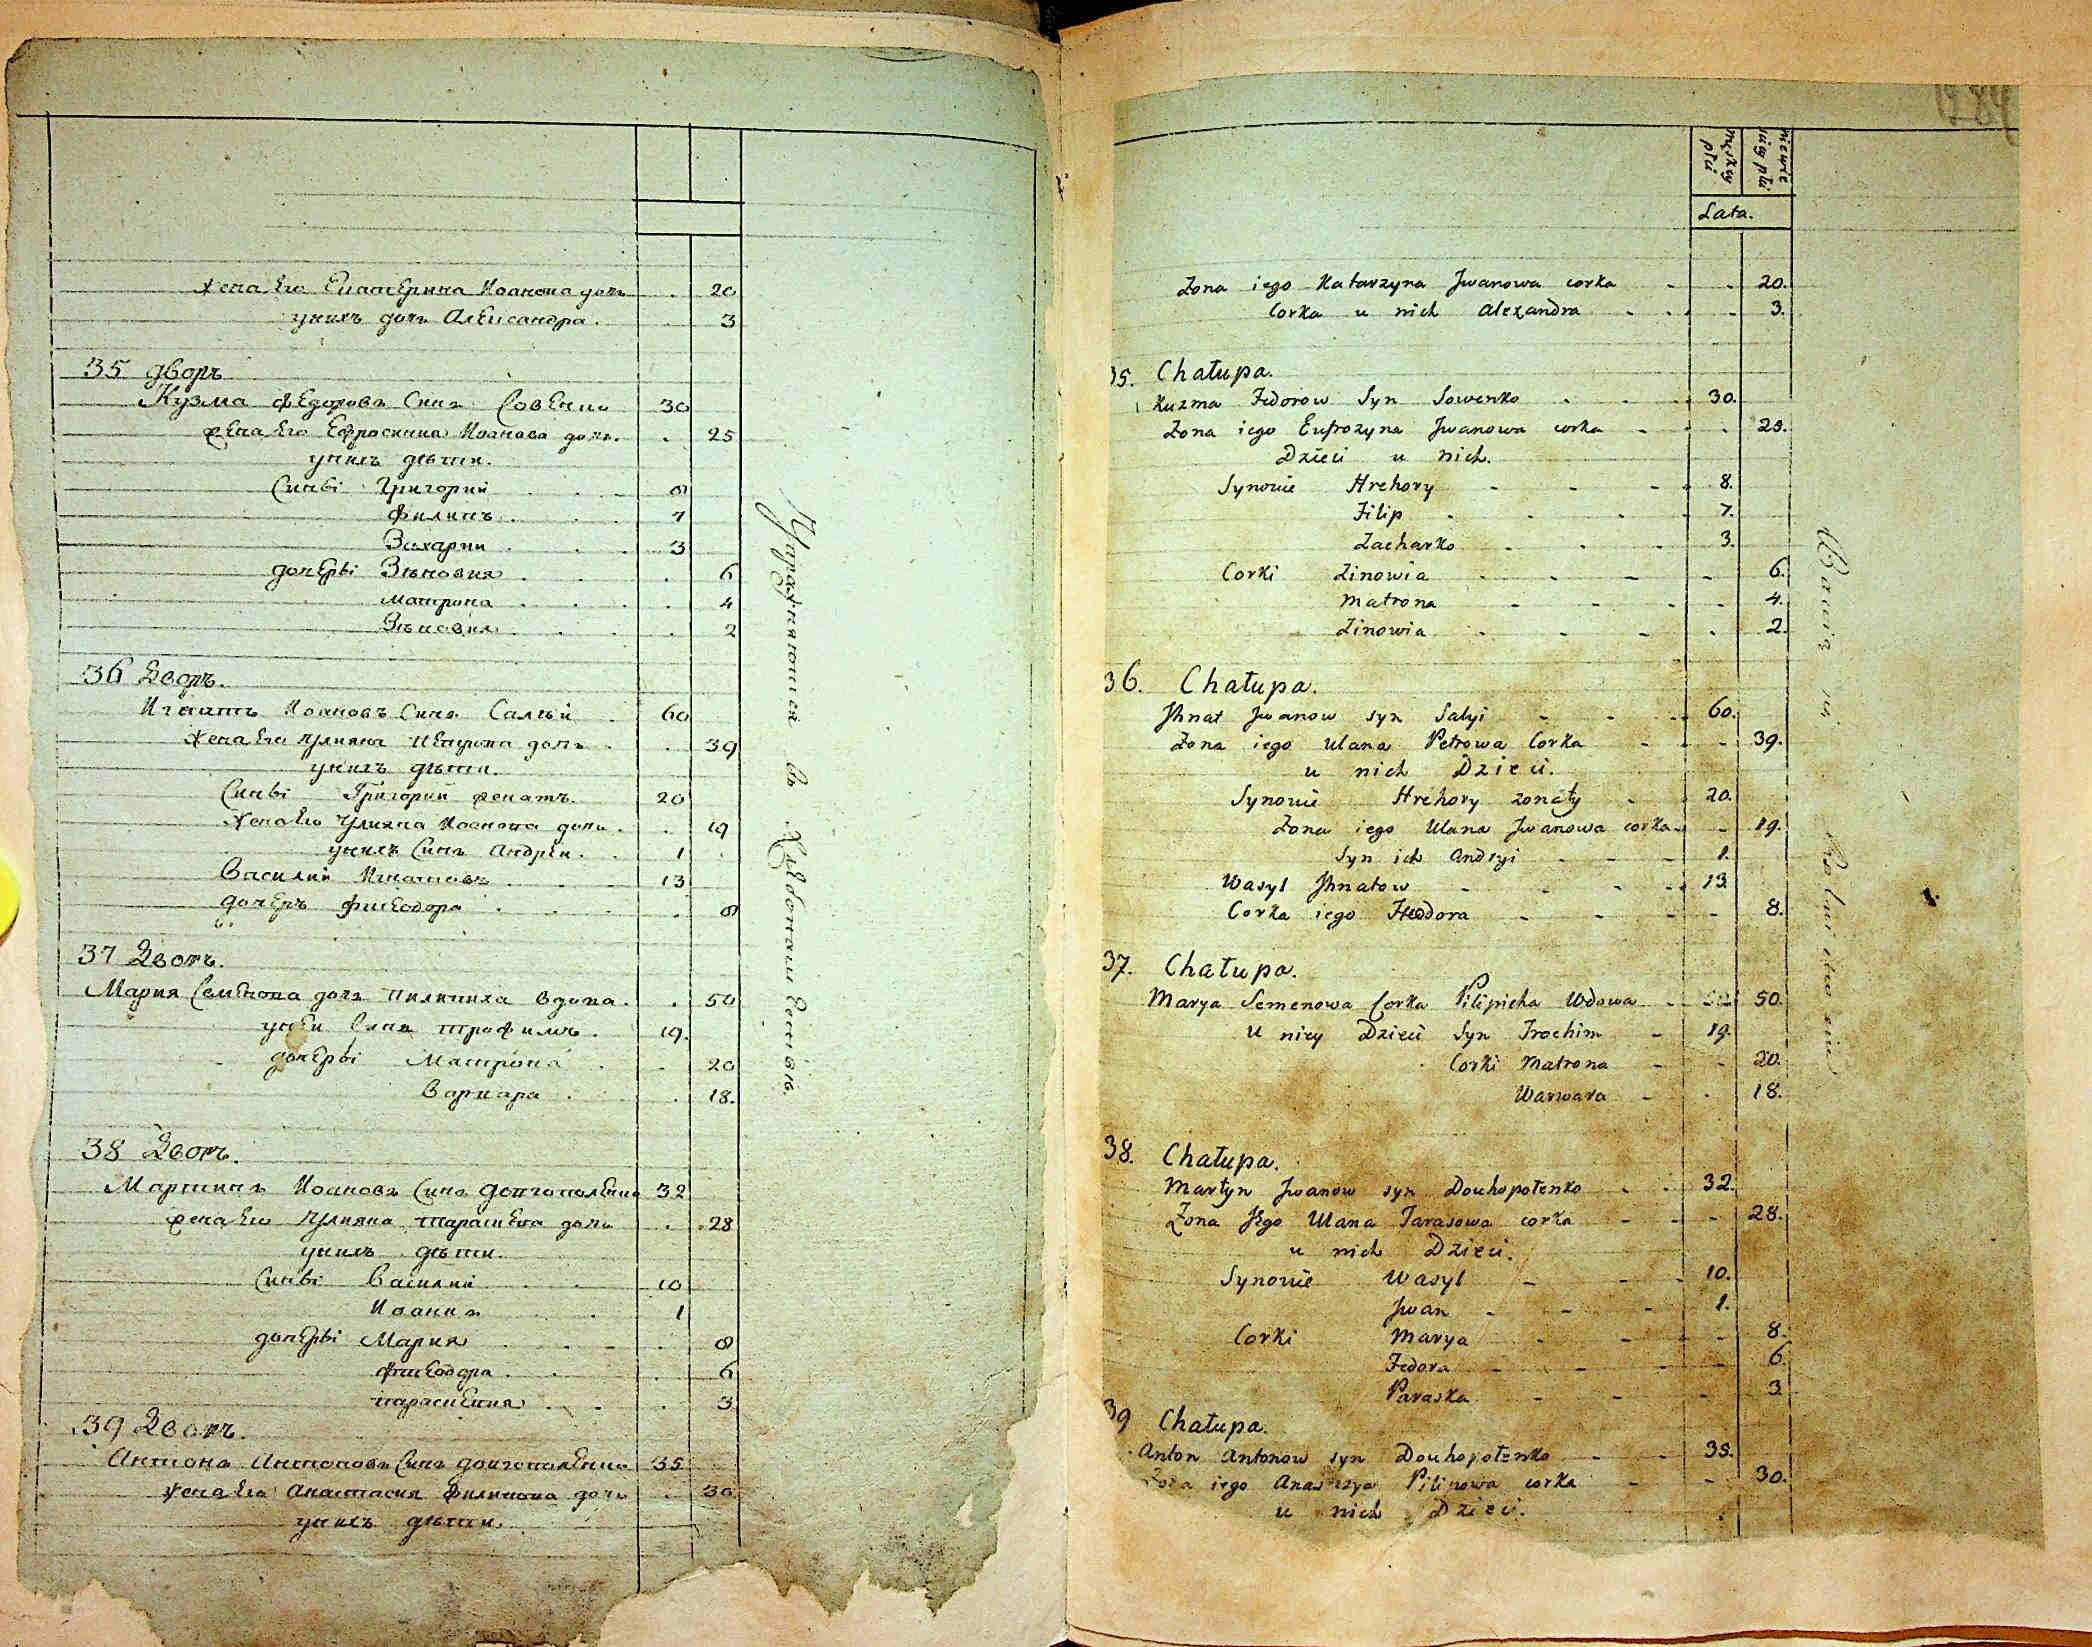 жена Его Екатерина Иоанова дочь . 20
унихъ дочь Александра . 3
35 дворъ
Кузма Федоровъ Синъ Совенко 30
жена Его Ефросиниа Иоанова дочь . . 25
унихъ дѣти.
Синві Григорий . . . 8
Филипъ . . . 7
Захарии . . . 3
дочерві Зѣновия . . . 6
матрона . . . 4
Зѣновия . . . 2
36 Дворъ.
Игнатъ Иоановъ Синъ Салѣй . 60
жена Его Улияна Петрова дочь . . 39
унихъ дѣти.
Синві Григорий женатъ. 20
жена Его Улияна Иоанова дочь . . 19
унихъ Синъ Андрей . . 1 .
Василий Игнатовъ . . . 13
дочеръ Фтеодора . . . 8
37 Дворъ.
Мария Семенова дочь Пилипиха вдова . . 50
уней Синъ трофимъ . 19.
дочерві Матрона . . 20
Варвара . . 18.
38 Дворъ.
Мартинъ Иоановъ Синъ Долгополенко 32
жена Его Улияна тарасиева дочь . . 28
унихъ дѣти.
Синві Василий . . 10
Иоаннъ . . 1
дочерві Мария . . . 8
Фтеодора . . 6
параскевия . . . 3
39 Дворъ.
Антонъ Антоновъ Синъ долгополенко 35
жена Его Анастасия Филипова дочь . 30
унихъ дѣти.
Упражняются въ Хлѣбопашество
męzkey płci
niewieściey płci
Lata.
Żona iego Katarzyna Jwanowa corka - - 20.
Corka u nich Alexandra . . . - 3.
35. Chałupa.
Kuzma Fedorow Syn Sowenko . . . 30.
Żona iego Eufrozyna Jwanowa corka - - - 25.
Dzieci u nich.
Synowie Hrehory - - - 8.
Filip . . . - 7.
Zacharko - . - 3.
Corki Zinowia . - - - 6.
Matrona - - - - 4.
Zinowia - - - . 2.
36. Chałupa.
Jhnat Jwanow syn Salyi - - - 60.
Żona iego Ulana Petrowa Corka - - - 39.
u nich Dzieci.
Synowie Hrehory zonaty . . 20.
Żona iego Ulana Jwanowa corka - - 19.
Syn ich Andryi - - - 1.
Wasyl Jhnatow - - - - 13
Corka iego Fteodora - - - - 8.
37. Chałupa.
Marya Semenowa Corka Pilipicha Wdowa - 50.
U niey Dzieci Syn Trochim - 19.
Corki Matrona - - 20.
Warwara - . 18.
38. Chałupa.
Martyn Jwanow syn Douhopołenko . . 32.
Żona Jego Ulana Tarasowa corka - - - 28.
u nich Dzieci.
Synowie Wasyl - - - 10.
Jwan - - - 1.
Corki Marya - - - 8.
Fedora - - - - 6.
Paraska - - - - 3
39 Chałupa.
Anton Antonow syn Douhopołenko - - 35.
Żona iego Anastazya Pilipowa corka - - 30.
u nich Dzieci.